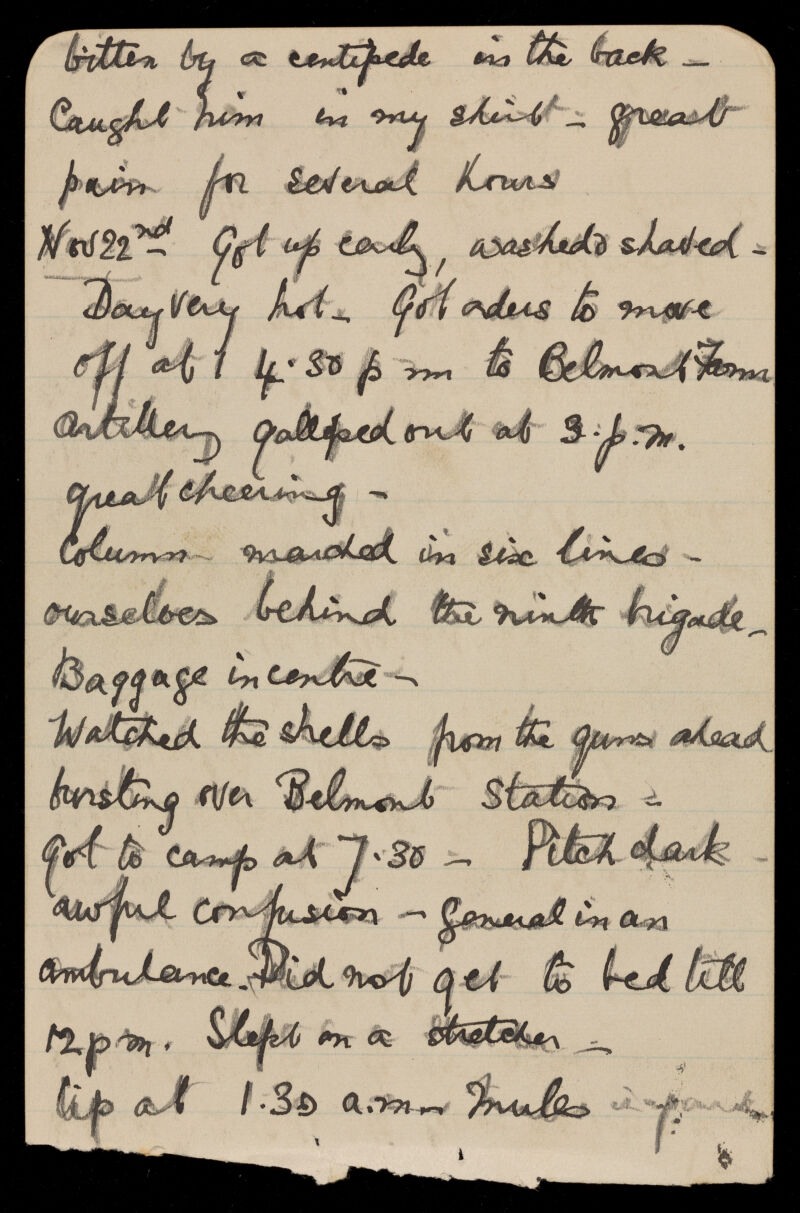 bitten by a centipede in the back –
Caught him in my shirt – great
pain for several hours
Nov 22nd Got up early, washed & shaved –
Day very hot – Got orders to move
off at 4.30 p m to Belmont Farm
Artillery galloped out at 3. p.m.
great cheering –
Column marched in six lines –
ourselves behind the ninth brigade –
Baggage in centre –
Watched the shells from the guns ahead
bursting over Belmont Station –
Got to camp at 7.30 – Pitch dark –
awful confusion – General in an
ambulance. Did not get to bed till
12 p m. Slept on a stretcher –
Up at 1.30 a.m. Mules